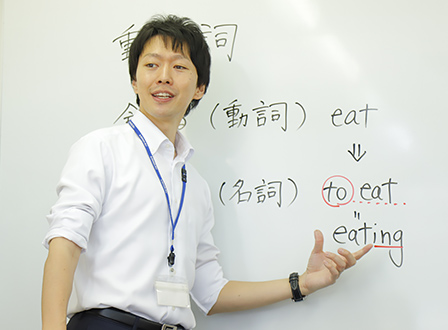 動 詞
(動詞) eat
⇓
(名詞) to eat
"
eating